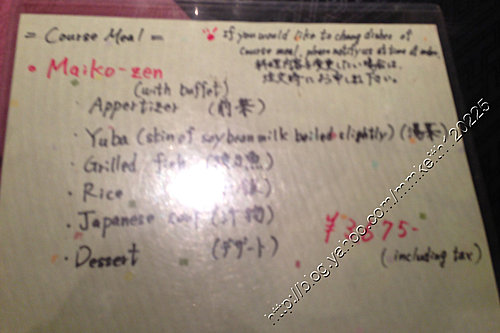 = Course Meal =
If you would like to change dishes of
course meal, please notify us at time of order.
料理内容を変更したい場合は、
注文時にお申し出下さい。
• Maiko-zen
(with buffet)
・Appertizer (前菜)
・Yuba (skin of soybean milk boiled slightly) (湯葉)
・Grilled fish (焼魚)
・Rice
・Japanese soup (汁物)
・Dessert (デザート)
¥3,675-
(including tax)
http://blog.yahoo.com/mmkeith1120225